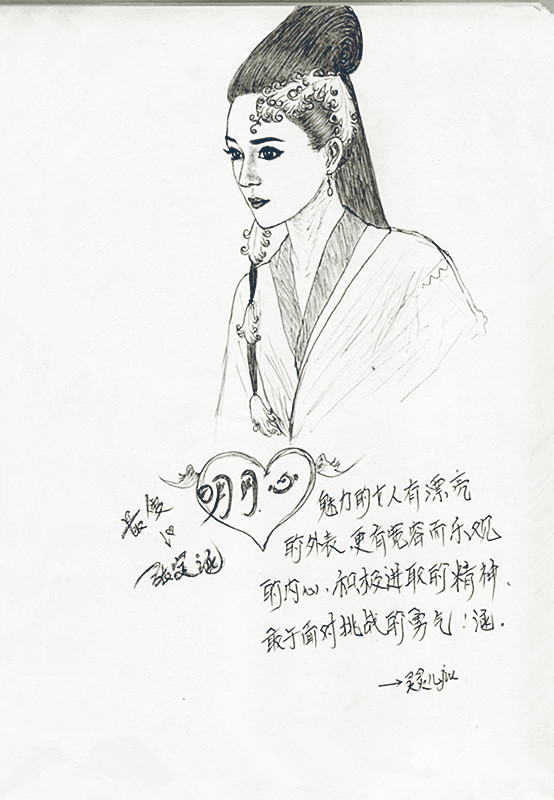 明月心
张定涵
魅力的女人有漂亮
的外表、更有宽容而乐观
的内心、积极进取的精神、
敢于面对挑战的勇气！涵.